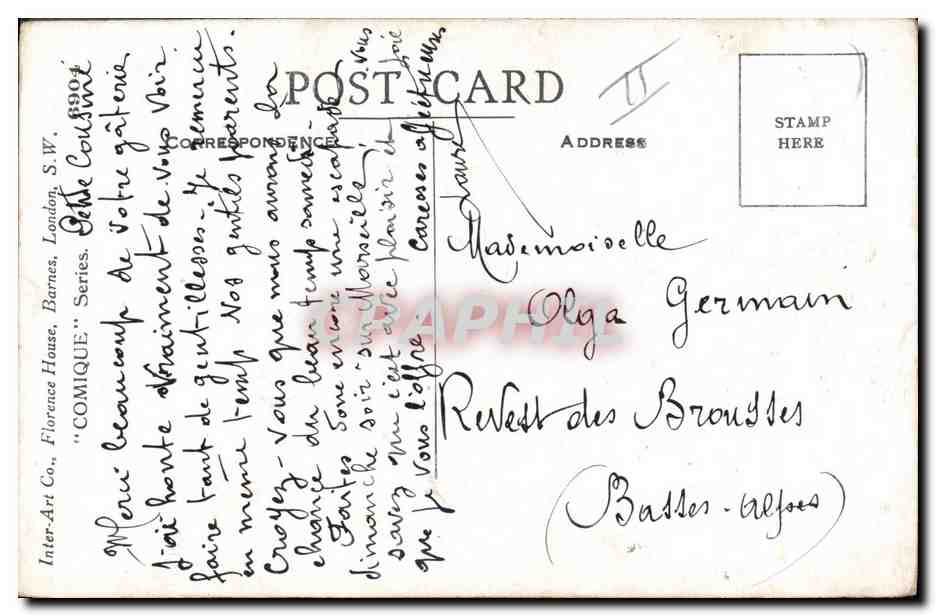 Inter-Art Co., Florence House, Barnes, London, S.W.
"COMIQUE" Series. 6904
POST CARD
CORRESPONDENCE
ADDRESS
STAMP
HERE
II
Petite Cousine
Merci beaucoup de votre gâterie
J'ai honte vraiment de vous voir
faire tant de gentillesses. Je remercie
en même temps vos gentils parents.
Croyez-vous que nous aurons la
chance du beau temps samedi-
Faites donc encore une escapade
dimanche soir sur Marseille! Vous
savez que c'est avec plaisir et joie
que je vous l'offre. Caresses affectueuses
Laure
Mademoiselle
Olga Germain
Revest des Brousses
(Basses-Alpes)
CPAPHIL